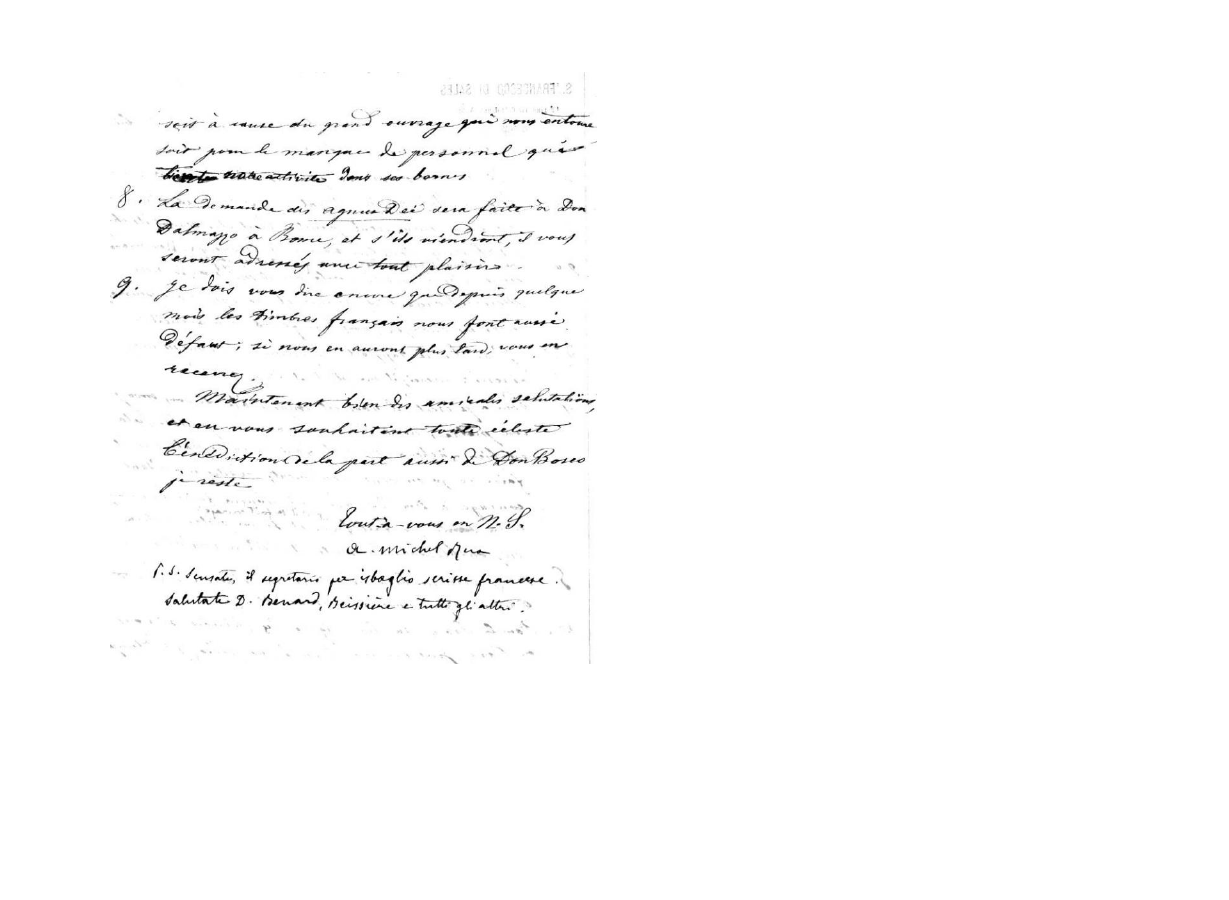 S. FRANCESCO DI SALES
soit à cause du grand ouvrage qui nous entoure
soit pour le manque de personnel qui
notre activité dans ses bornes
8. La demande des agnus Dei sera faite à Don
Dalmazzo à Rome, et s'ils viendront, il vous
seront adressés avec tout plaisir.
9. Je dois vous dire encore que depuis quelque
mois les timbres français nous font aussi
défaut; si nous en aurons plus tard, vous en
recevrez.
Maintenant bien des amicales salutations,
et en vous souhaitant toute céleste
bénédiction de la part aussi de Don Bosco
je reste
Tout-à-vous en N. S.
Michel Rua
P. S. Scusate, il segretario per isbaglio scrisse francese.
Salutate D. Benard, Beissière e tutti gli altri.